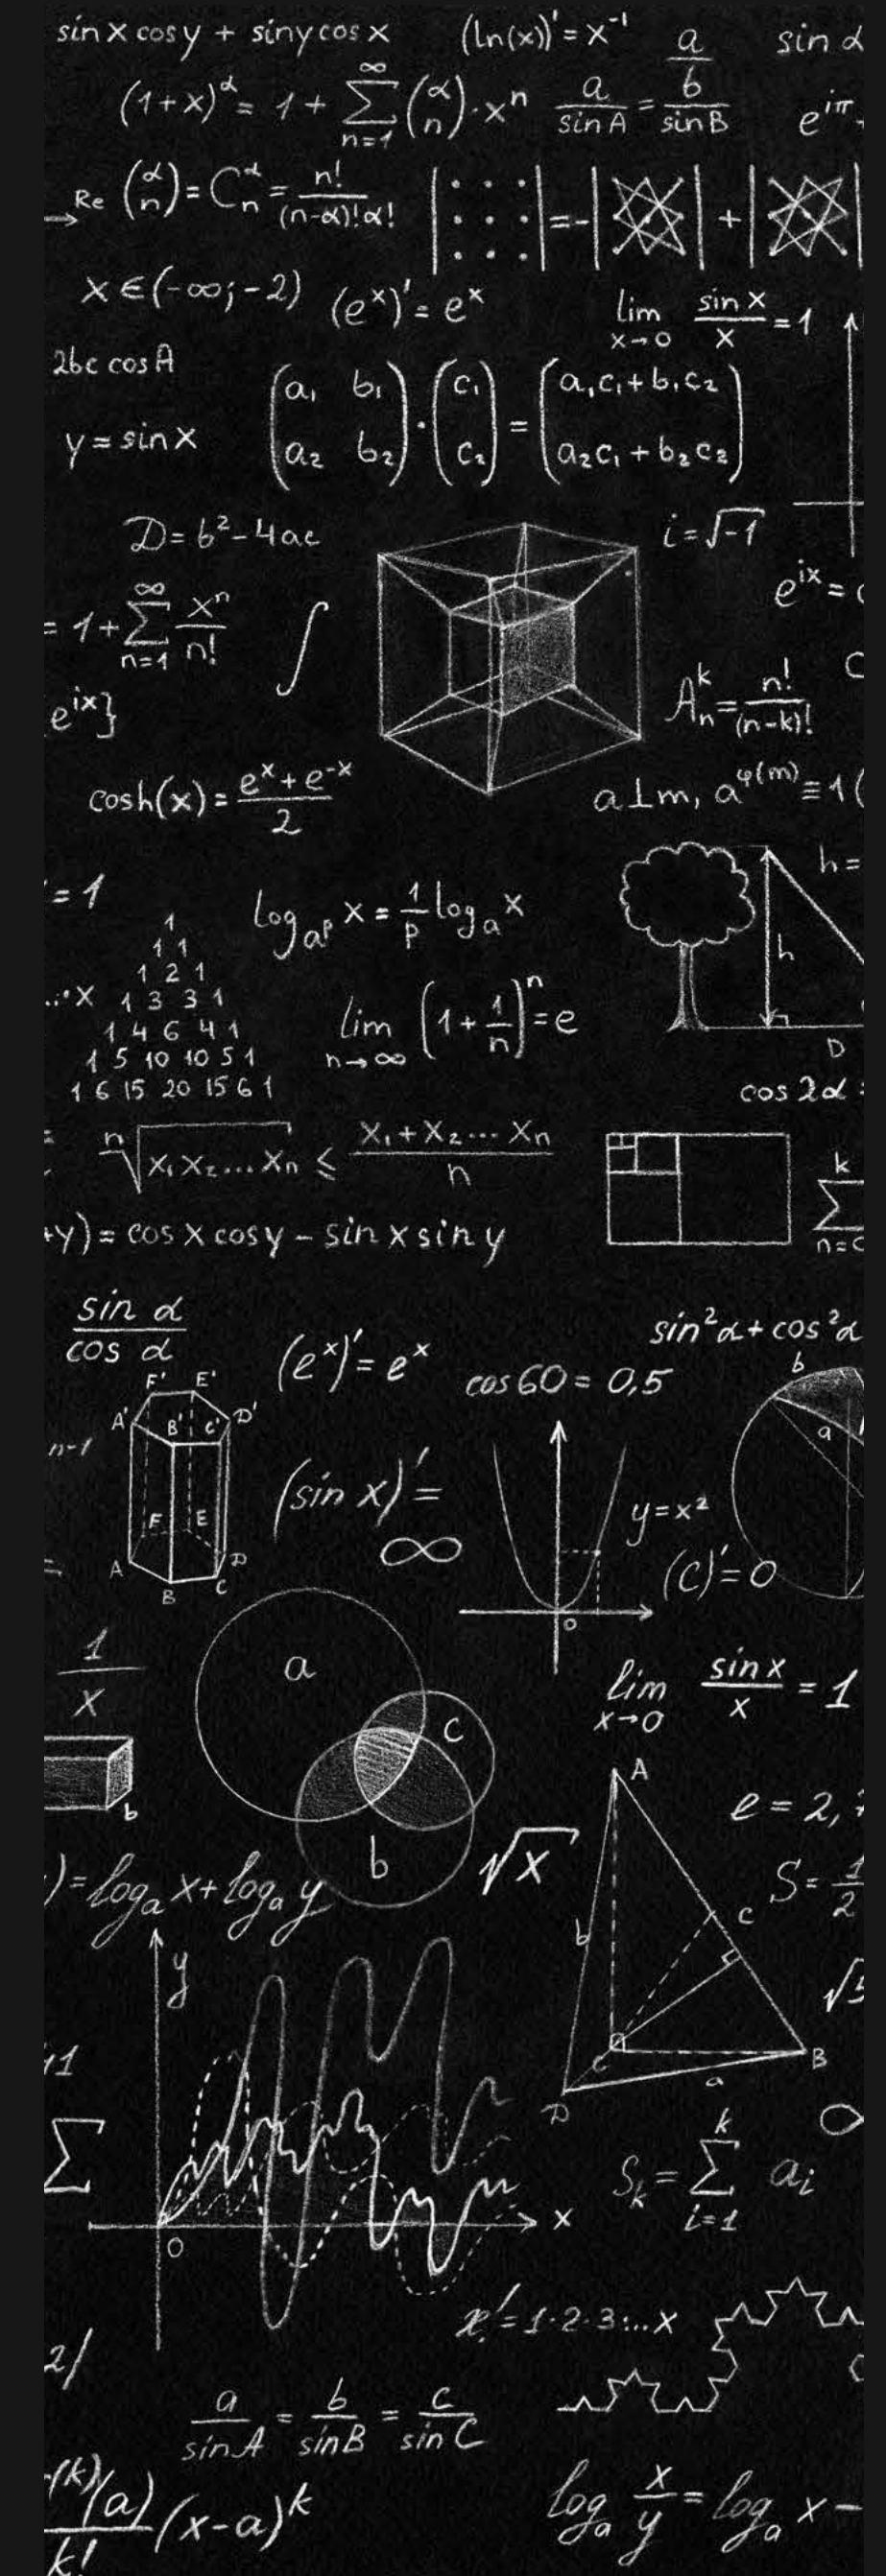 sin x cos y + sin y cos x
(ln(x))' = x⁻¹
a
sin α
(1+x)^α = 1 + ∑_{n=1}^{∞} (α n) · xⁿ
a/sin A = b/sin B
e^{iπ}
→ Re
(α n) = C_n^α = n!/(n-α)!α!
| | = - | | + | |
x ∈ (-∞; -2)
(eˣ)' = eˣ
lim_{x→0} sin x / x = 1
2bc cos A
y = sin x
(a₁ b₁ a₂ b₂) · (c₁ c₂) = (a₁c₁ + b₁c₂ a₂c₁ + b₂c₂)
D = b² - 4ac
i = √-1
= 1 + ∑_{n=1}^{∞} xⁿ/n!
∫
e^{ix} =
e^{ix}}
A_n^k = n!/(n-k)!
cosh(x) = (eˣ + e⁻ˣ)/2
a ⊥ m, a^{φ(m)} ≡ 1 (
= 1
log_{a^p} x = 1/p log_a x
h =
h
1
1 1
1 2 1
...·x
1 3 3 1
1 4 6 4 1
1 5 10 10 5 1
1 6 15 20 15 6 1
lim_{n→∞} (1 + 1/n)ⁿ = e
D
cos 2α
ⁿ√x₁x₂...xₙ ≤ (x₁ + x₂ ... xₙ)/n
∑_{n=0}^{k}
+y) = cos x cos y - sin x sin y
sin α / cos α
(eˣ)' = eˣ
sin²α + cos²α
cos 60 = 0,5
b
a
F' E'
A' B' C' D'
n-1
F E
A B C D
(sin x)' =
∞
y = x²
0
(C)' = 0
1/x
a
c
b
lim_{x→0} sin x / x = 1
b
A
e = 2,
) = log_a x + log_a y
√x
S = 1/2
b
C
√5
y
C
B
a
D
∑
S_k = ∑_{i=1}^{k} a_i
x
0
x! = 1·2·3·...x
2/
a/sin A = b/sin B = c/sin C
(k)(a)/k! (x-a)^k
log_a x/y = log_a x -